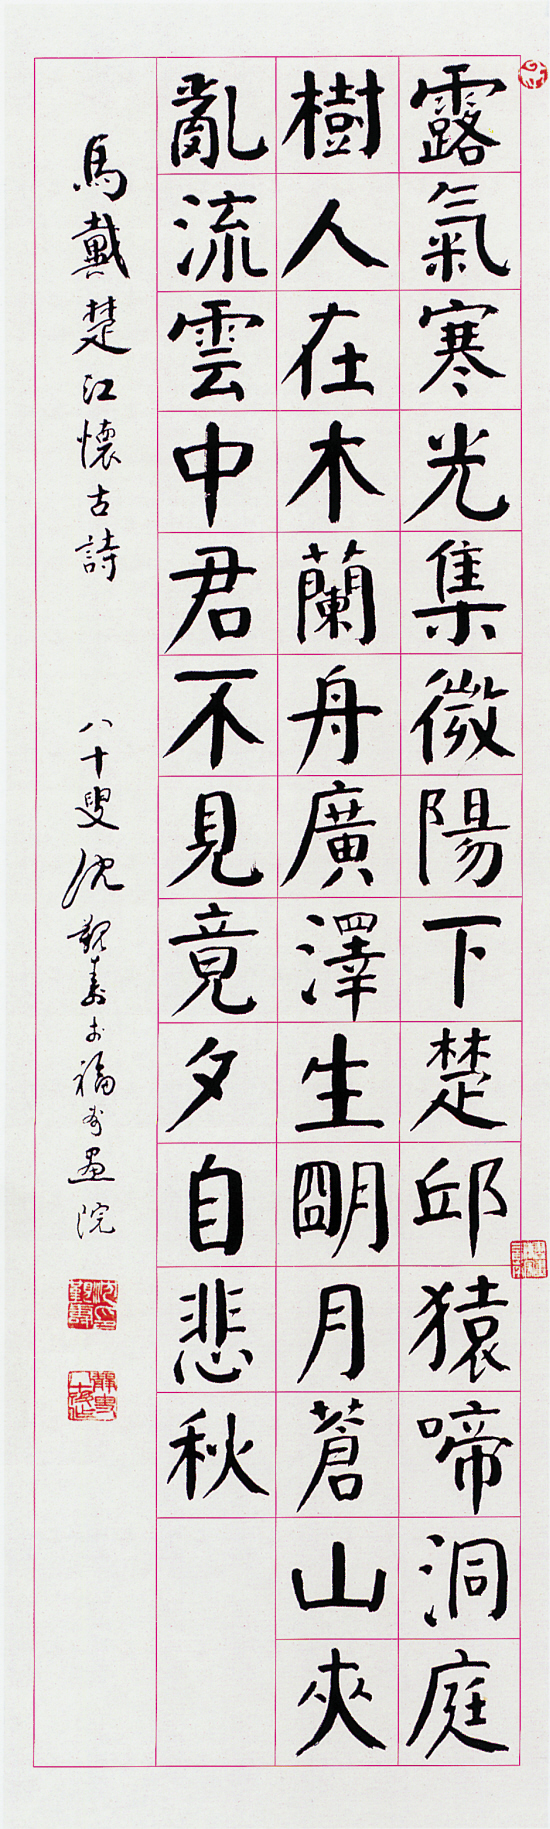 露氣寒光集微陽下楚邱猿啼洞庭
樹人在木蘭舟廣澤生朙月蒼山夾
亂流雲中君不見竟夕自悲秋
馬戴楚江懷古詩 八十叟沈覲壽於福州畫院